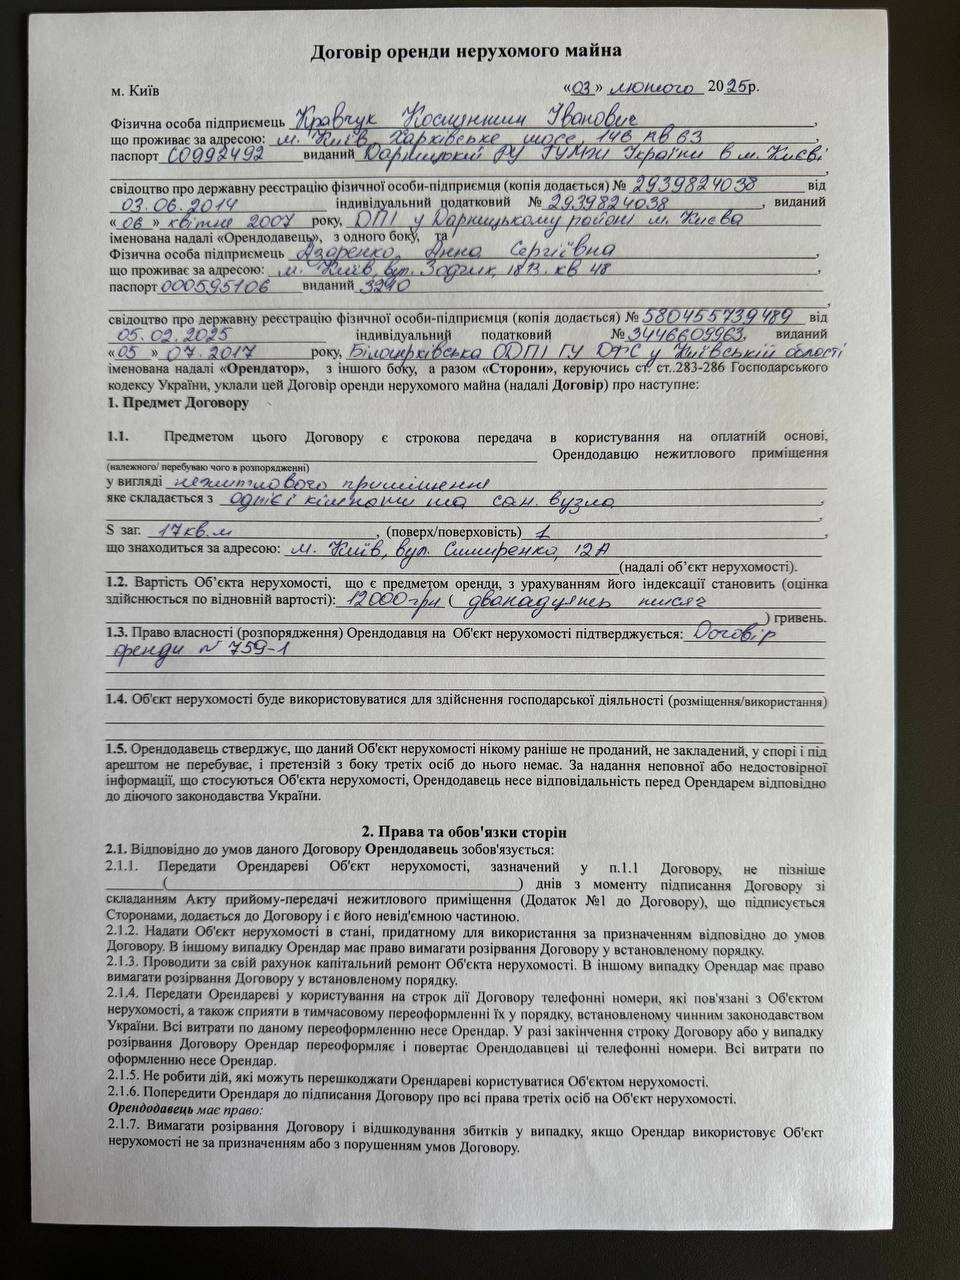 Договір оренди нерухомого майна
м. Київ «03» лютого 2025р.
Фізична особа підприємець Кравчук Костянтин Іванович,
що проживає за адресою: м. Київ, Харківське шосе, 14б кв 63,
паспорт СО992492 виданий Дарницький РУ ГУМВС України в м. Києві
свідоцтво про державну реєстрацію фізичної особи-підприємця (копія додається) № 2939824038 від
03.06.2014 індивідуальний податковий № 2939824038, виданий
«06» квітня 2007 року, ДПІ у Дарницькому районі м. Києва
іменована надалі «Орендодавець», з одного боку, та
Фізична особа підприємець Азаренко Анна Сергіївна
що проживає за адресою: м. Київ, вул. Зодчих, кв 48
паспорт 000595106 виданий 3210
свідоцтво про державну реєстрацію фізичної особи-підприємця (копія додається) № 580455739489 від
05.02.2025 індивідуальний податковий № 3446609963, виданий
«05» 07.2017 року, Білоцерківська ОДПІ ГУ ДФС у Київській області
іменована надалі «Орендатор», з іншого боку, а разом «Сторони», керуючись ст. ст..283-286 Господарського
кодексу України, уклали цей Договір оренди нерухомого майна (надалі Договір) про наступне:
1. Предмет Договору
1.1. Предметом цього Договору є строкова передача в користування на оплатній основі,
Орендодавцю нежитлового приміщення
(належного/ перебуваю чого в розпорядженні)
у вигляді нежитлового приміщення
яке складається з однієї кімнати та сан. вузла,
S заг. 17 кв.м, (поверх/поверховість) 1,
що знаходиться за адресою: м. Київ, вул. Симиренка, 12А
(надалі об’єкт нерухомості).
1.2. Вартість Об’єкта нерухомості, що є предметом оренди, з урахуванням його індексації становить (оцінка
здійснюється по відновній вартості): 12000 грн (дванадцять тисяч
) гривень.
1.3. Право власності (розпорядження) Орендодавця на Об'єкт нерухомості підтверджується: Договір
оренди № 759-1
1.4. Об'єкт нерухомості буде використовуватися для здійснення господарської діяльності (розміщення/використання)
1.5. Орендодавець стверджує, що даний Об'єкт нерухомості нікому раніше не проданий, не закладений, у спорі і під
арештом не перебуває, і претензій з боку третіх осіб до нього немає. За надання неповної або недостовірної
інформації, що стосуються Об'єкта нерухомості, Орендодавець несе відповідальність перед Орендарем відповідно
до діючого законодавства України.
2. Права та обов'язки сторін
2.1. Відповідно до умов даного Договору Орендодавець зобов'язується:
2.1.1. Передати Орендареві Об'єкт нерухомості, зазначений у п.1.1 Договору, не пізніше
( ) днів з моменту підписання Договору зі
складанням Акту прийому-передачі нежитлового приміщення (Додаток №1 до Договору), що підписується
Сторонами, додається до Договору і є його невід'ємною частиною.
2.1.2. Надати Об'єкт нерухомості в стані, придатному для використання за призначенням відповідно до умов
Договору. В іншому випадку Орендар має право вимагати розірвання Договору у встановленому порядку.
2.1.3. Проводити за свій рахунок капітальний ремонт Об'єкта нерухомості. В іншому випадку Орендар має право
вимагати розірвання Договору у встановленому порядку.
2.1.4. Передати Орендареві у користування на строк дії Договору телефонні номери, які пов'язані з Об'єктом
нерухомості, а також сприяти в тимчасовому переоформленні їх у порядку, встановленому чинним законодавством
України. Всі витрати по даному переоформленню несе Орендар. У разі закінчення строку Договору або у випадку
розірвання Договору Орендар переоформляє і повертає Орендодавцеві ці телефонні номери. Всі витрати по
оформленню несе Орендар.
2.1.5. Не робити дій, які можуть перешкоджати Орендареві користуватися Об'єктом нерухомості.
2.1.6. Попередити Орендаря до підписання Договору про всі права третіх осіб на Об'єкт нерухомості.
Орендодавець має право:
2.1.7. Вимагати розірвання Договору і відшкодування збитків у випадку, якщо Орендар використовує Об'єкт
нерухомості не за призначенням або з порушенням умов Договору.